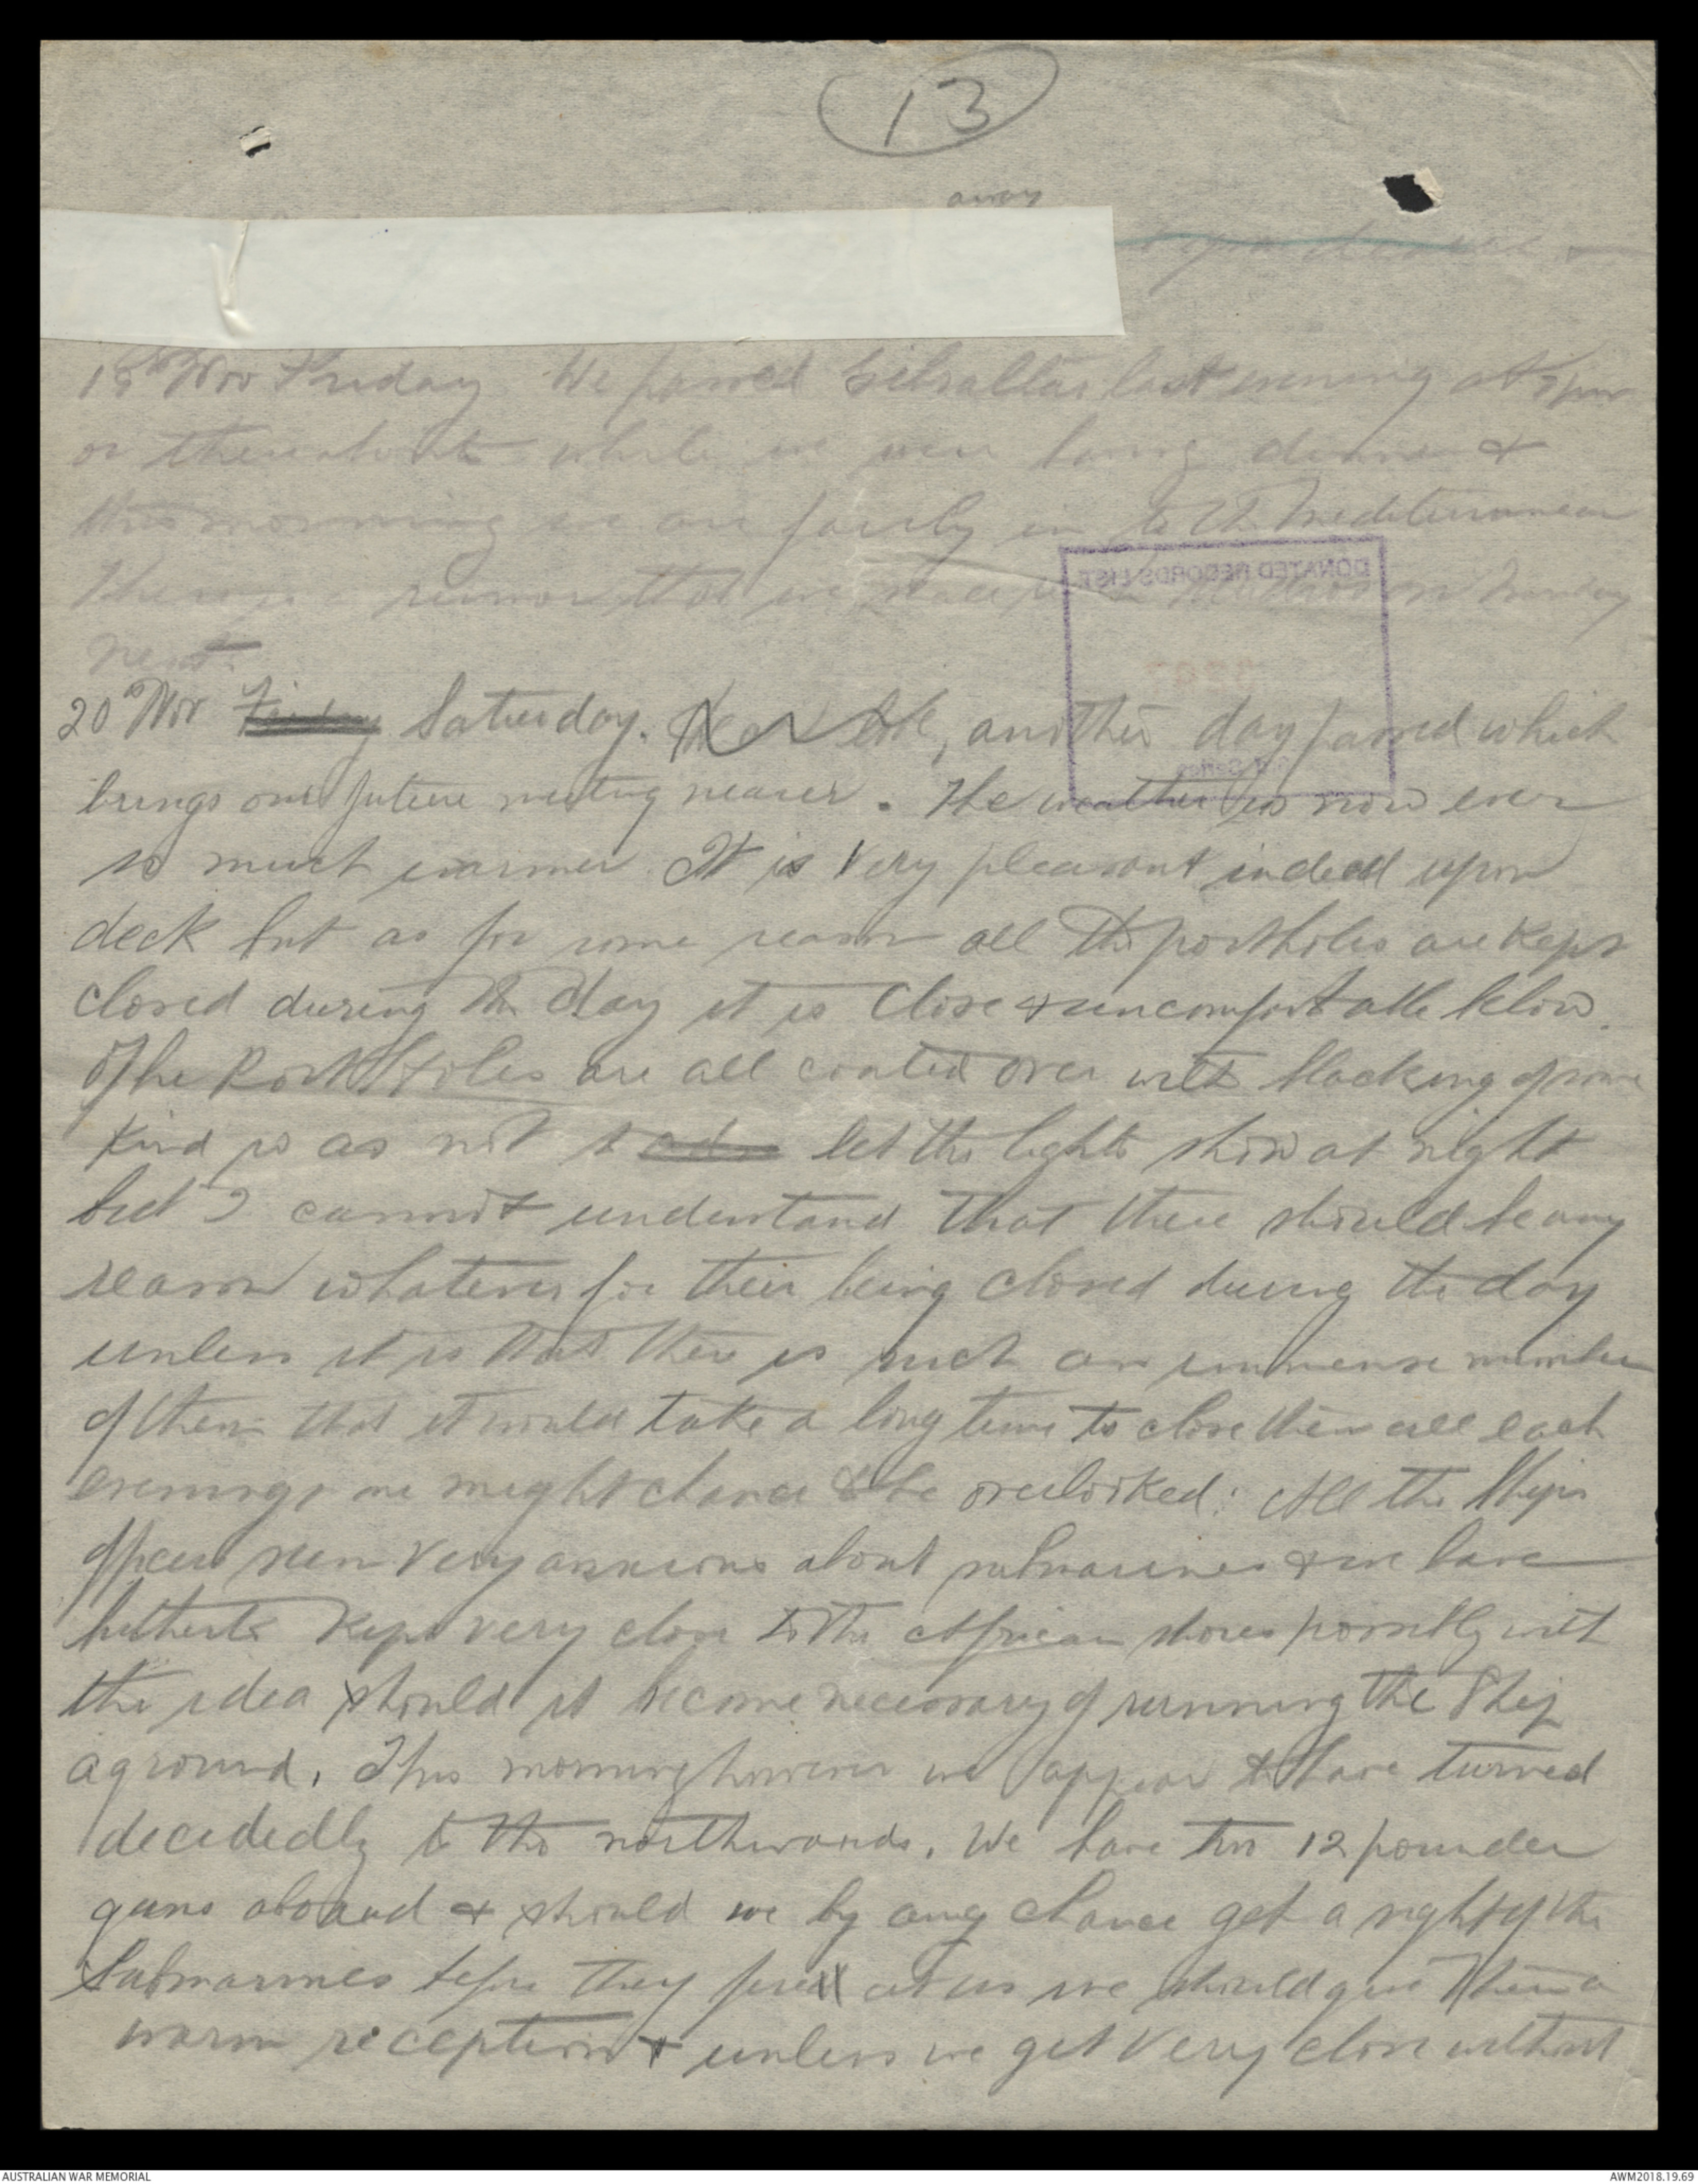 13
away
19th Nov Friday We passed Gibraltar last evening at 7pm
or thereabouts while we were having dinner &
this morning we are fairly in to the Mediterranean
There is a rumor that we on Monday
next.
20th Nov Friday Saturday. another day passed which
brings our future meeting nearer. The weather is now ever
so much warmer. It is very pleasant indeed upon
deck but as for some reason all the portholes are kept
closed during the day it is close & uncomfortable below.
The Port Holes are all coated over with blacking of some
kind so as not to let the lights show at night
but I cannot understand that there should be any
reason whatever for their being closed during the day
unless it is that there is such an immense number
of them that it would take a long time to close them all each
evening & one might chance to be overlooked: All the Ships
officers seem very anxious about submarines & we have
hitherto kept very close to the African shores possibly with
the idea should it become necessary of running the Ship
aground. This morning however we appear to have turned
decidedly to the northwards. We have two 12 pounder
guns aboard & should we by any chance get a sight of the
Submarines before they fire at us we should give them a
warm reception & unless we get very close without
DONATED RECORDS LIST
AUSTRALIAN WAR MEMORIAL
AWM2018.19.69